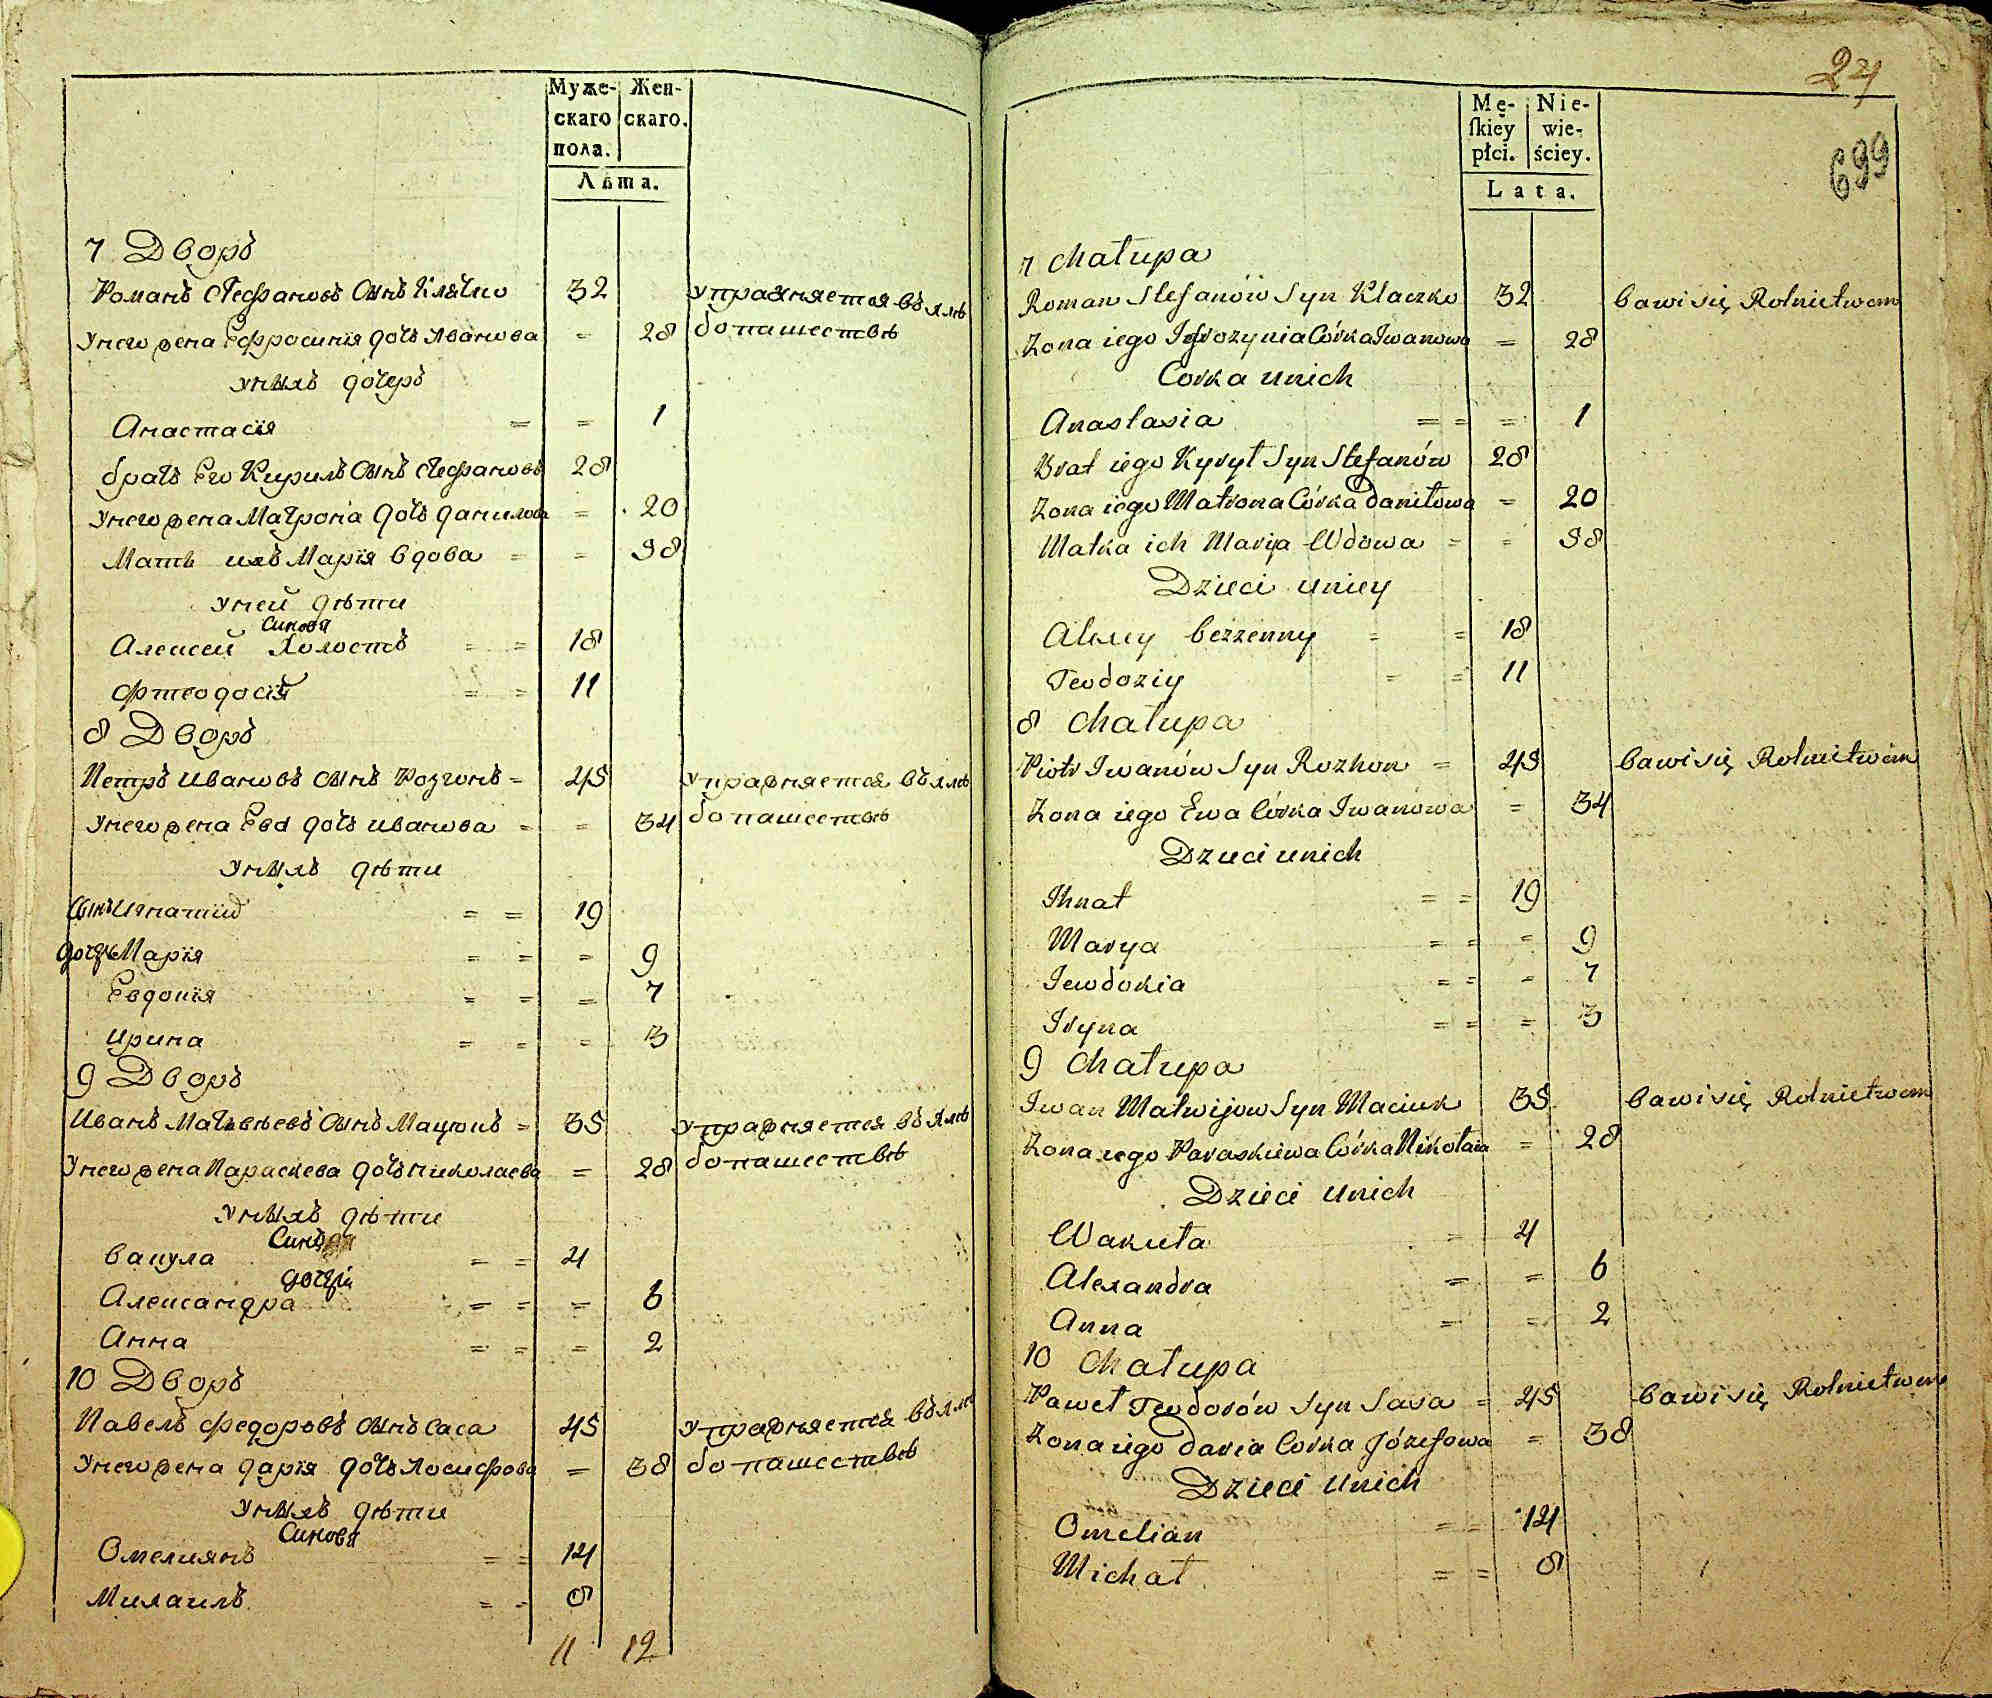 Муже- Жен-
скаго скаго.
пола.
Лѣта.
7 Дворъ
Романъ Стефановъ Сынъ Клячко 32 упражняется въ хлѣ
Унего жена Ефросинія дочь Иванова = 28 бопашествѣ
Унихъ дочерь
Анастасія = = 1
братъ Его Кирилъ Сынъ Стефановъ 28
Унего жена Матрона дочь данилова = 20
Мать ихъ Марія вдова = = 98
Уней дѣти
Синовя
Алексей Холостъ = = 18
Фтеодосій = = 11
8 Дворъ
Петръ Ивановъ сынъ Розгонъ = 45 упражняется въ хлѣ
Унего жена Ева дочь иванова = = 34 бопашествѣ
Унихъ дѣти
Сынъ Игнатий = = 19
дочерь Марія = = = 9
Евдокія = = = 7
Ирина = = = 3
9 Дворъ
Иванъ Матвѣевъ сынъ Мацюкъ = 35 упражняется въ хлѣ
Унего жена Параскева дочь николаева = 28 бопашествѣ
Унихъ дѣти
Синовя
Вакула = = 4
дочери
Александра = = = 6
Анна = = = 2
10 Дворъ
Павелъ Федоровъ сынъ Саса 45 упражняется въ хлѣ
Унего жена дарія дочь Иосифова = 38 бопашествѣ
Унихъ дѣти
Синовя
Омелиянъ = = 14
Михаилъ = = 8
11 12
24
699
Mę- Nie-
skiey wie-
płci. ściey.
Lata.
7 Chałupa
Roman Stefanów Syn Klaczko 32 bawi się Rolnictwem
Zona iego Jefrozynia Córka Iwanowa = 28
Corka unich
Anastasia = = = 1
Brat iego Kyrył Syn Stefanów 28
Zona iego Matrona Córka Daniłowa = 20
Matka ich Marya Wdowa = = 98
Dzieci uniey
Alexey bezzenny = = 18
Teodoziy = = 11
8 Chałupa
Piotr Iwanów Syn Rozhon = 45 bawi się Rolnictwem
Zona iego Ewa Córka Iwanowa = 34
Dzieci unich
Ihnat = = 19
Marya = = = 9
Jewdokia = = = 7
Iryna = = = 3
9 Chałupa
Iwan Matwijow Syn Maciuk 35 bawi się Rolnictwem
Zona iego Paraskiewa Córka Nikołaia = 28
Dzieci unich
Wakuła = 4
Alexandra = = 6
Anna = = 2
10 Chałupa
Paweł Teodorów Syn Sasa = 45 bawi się Rolnictwem
Zona iego Daria Corka Józefowa = 38
Dzieci unich
Omelian = = 14
Michał = = 8